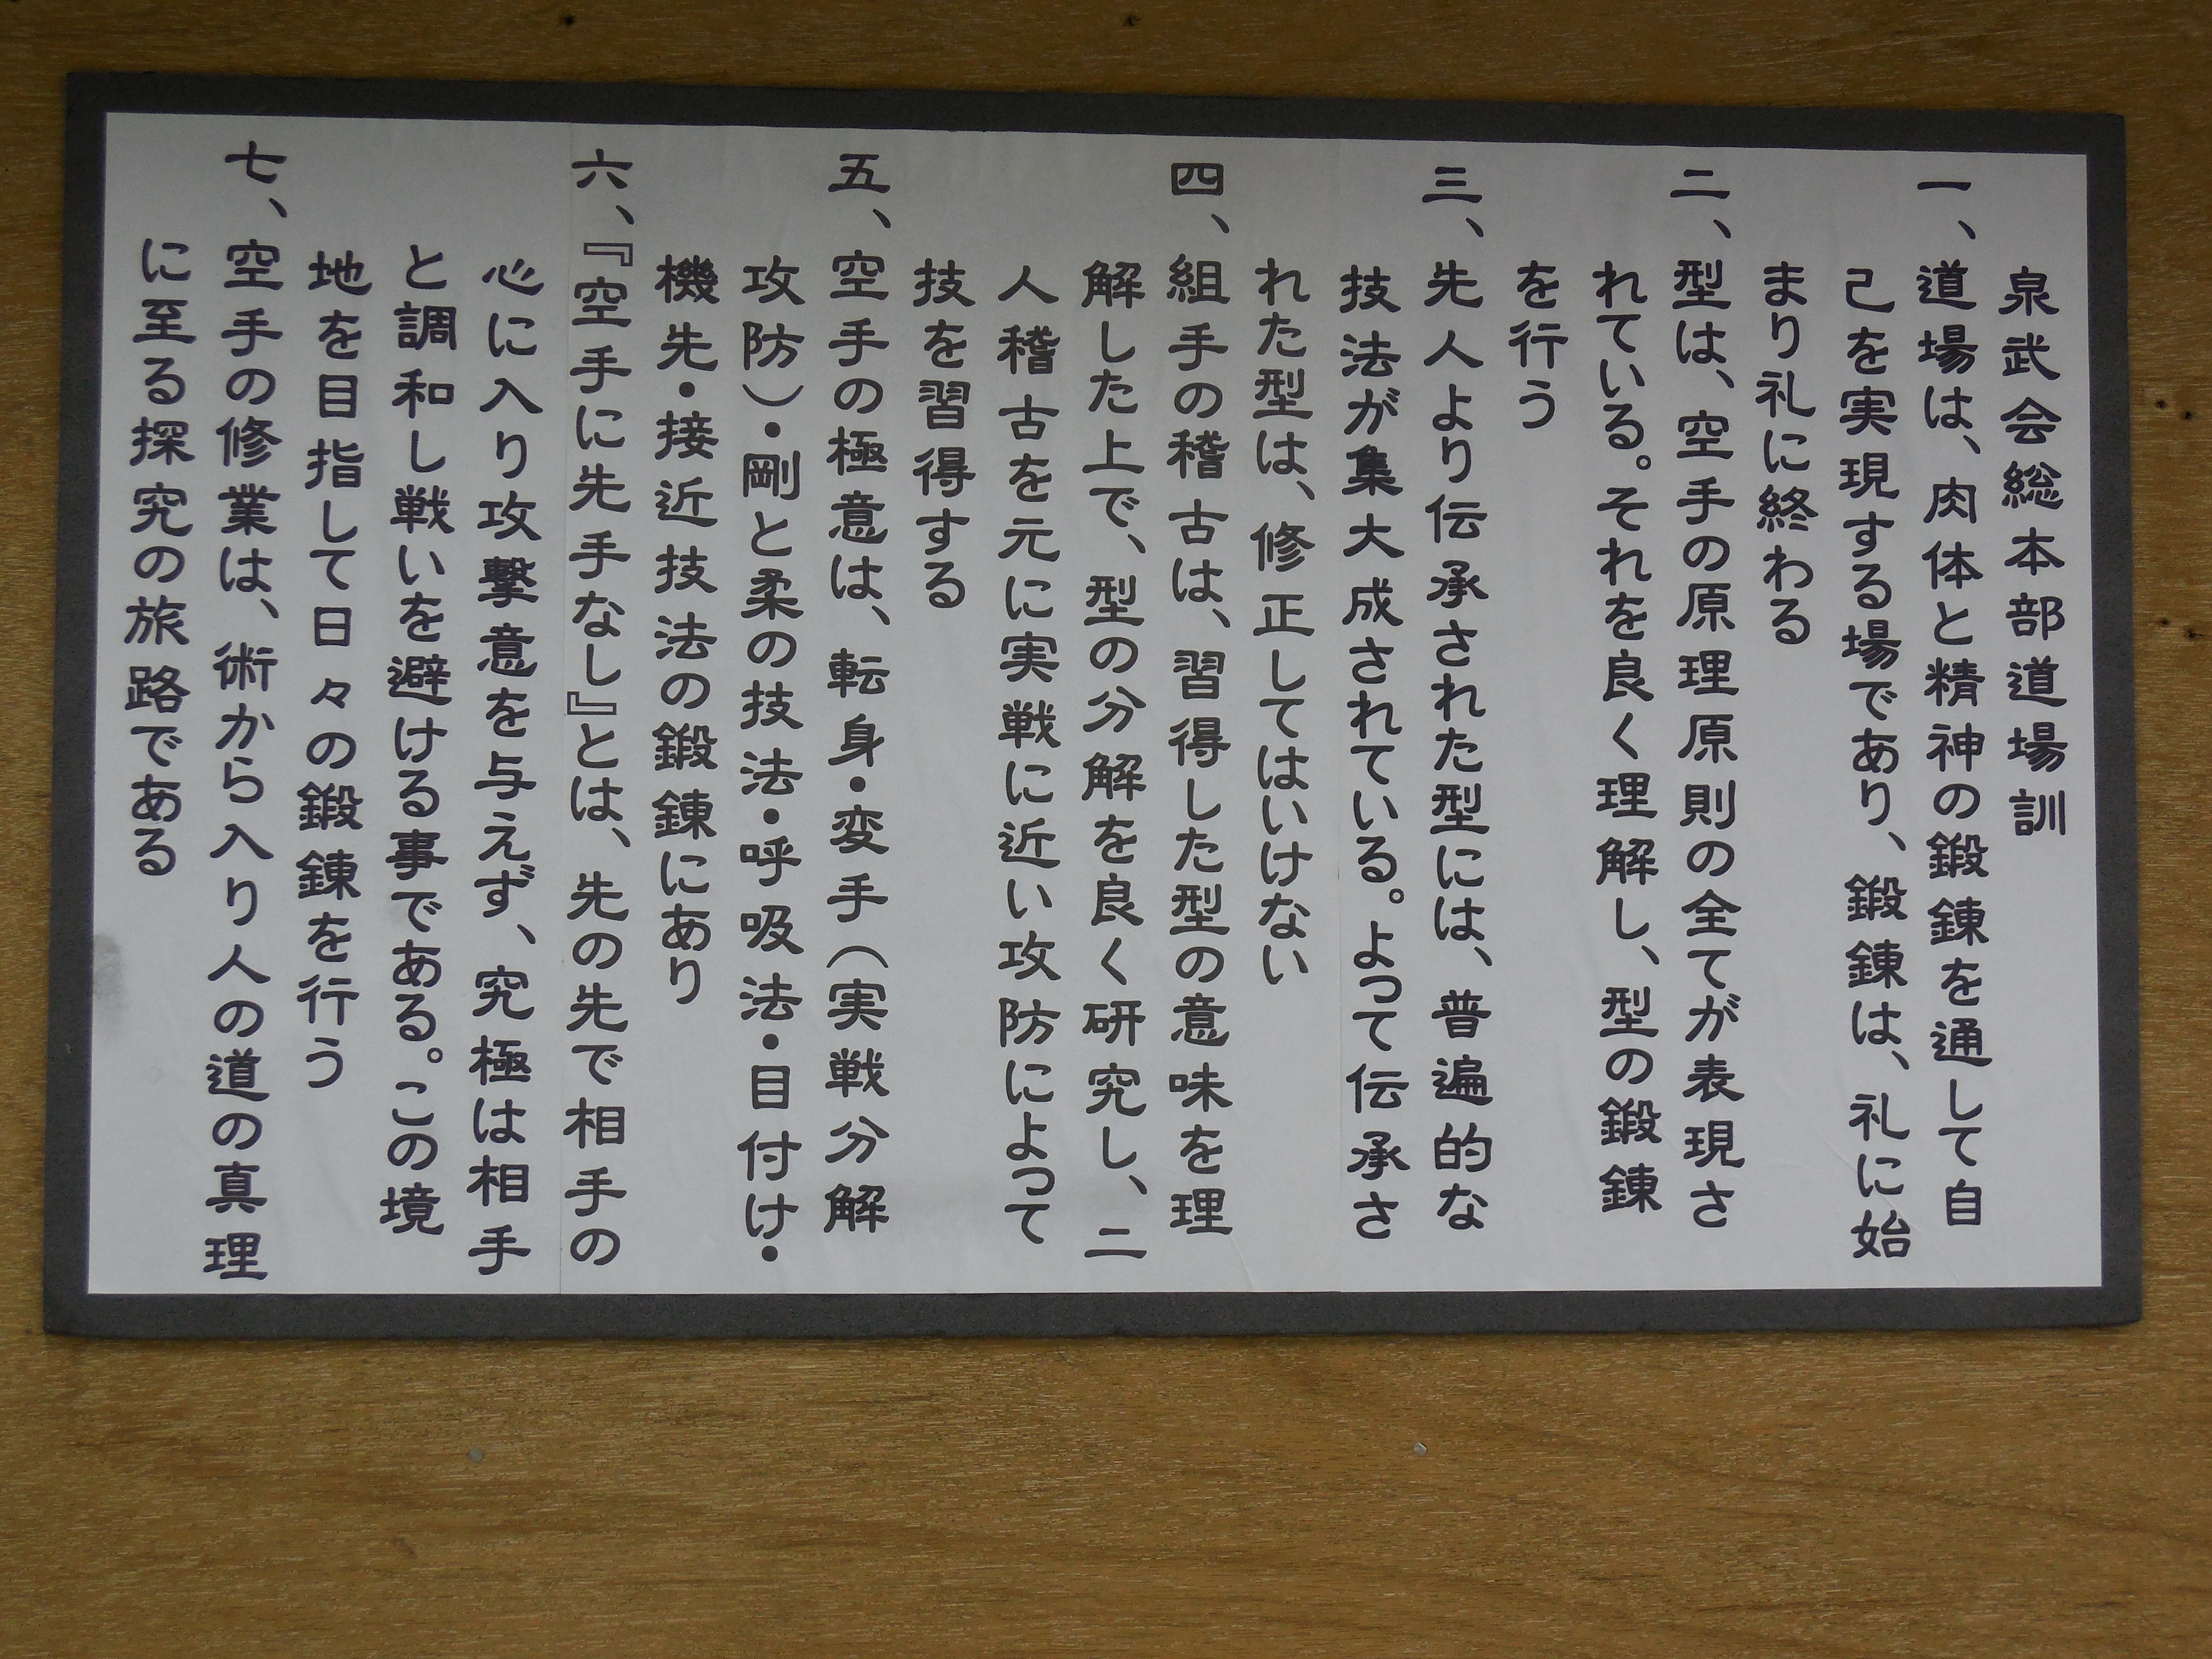 泉武会総本部道場訓
一、道場は、肉体と精神の鍛錬を通して自
己を実現する場であり、鍛錬は、礼に始
まり礼に終わる
二、型は、空手の原理原則の全てが表現さ
れている。それを良く理解し、型の鍛錬
を行う
三、先人より伝承された型には、普遍的な
技法が集大成されている。よって伝承さ
れた型は、修正してはいけない
四、組手の稽古は、習得した型の意味を理
解した上で、型の分解を良く研究し、二
人稽古を元に実戦に近い攻防によって
技を習得する
五、空手の極意は、転身・変手（実戦分解
攻防）・剛と柔の技法・呼吸法・目付け・
機先・接近技法の鍛錬にあり
六、『空手に先手なし』とは、先の先で相手の
心に入り攻撃意を与えず、究極は相手
と調和し戦いを避ける事である。この境
地を目指して日々の鍛錬を行う
七、空手の修業は、術から入り人の道の真理
に至る探究の旅路である